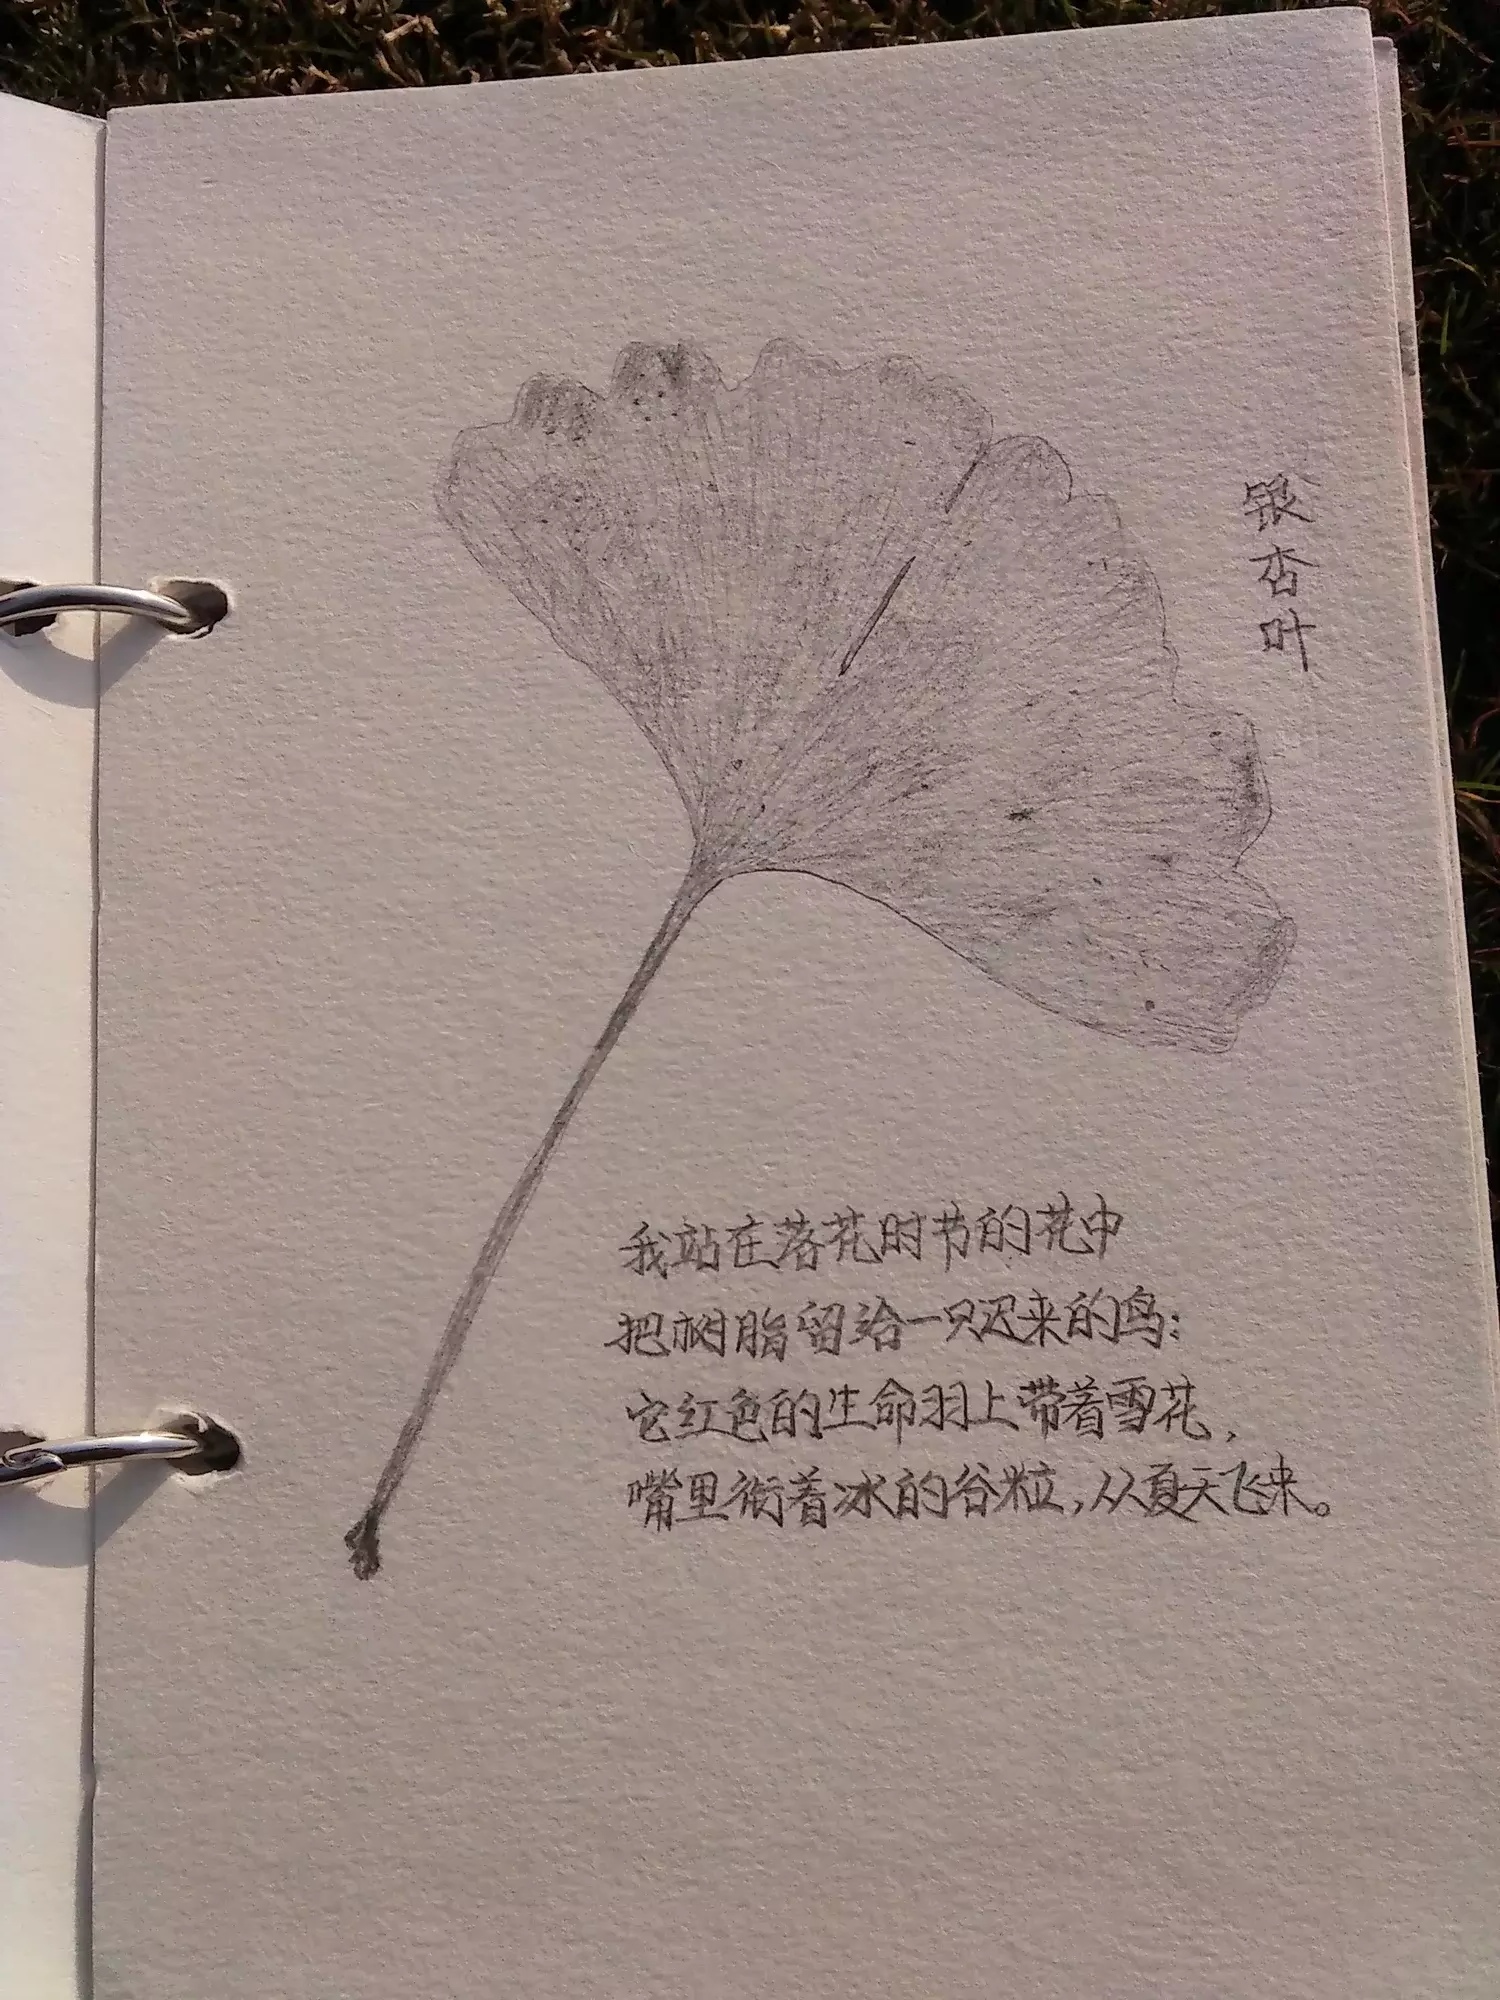 银杏叶
我站在落花时节的花中
把树脂留给一只迟来的鸟:
它红色的生命羽上带着雪花,
嘴里衔着冰的谷粒,从夏天飞来。